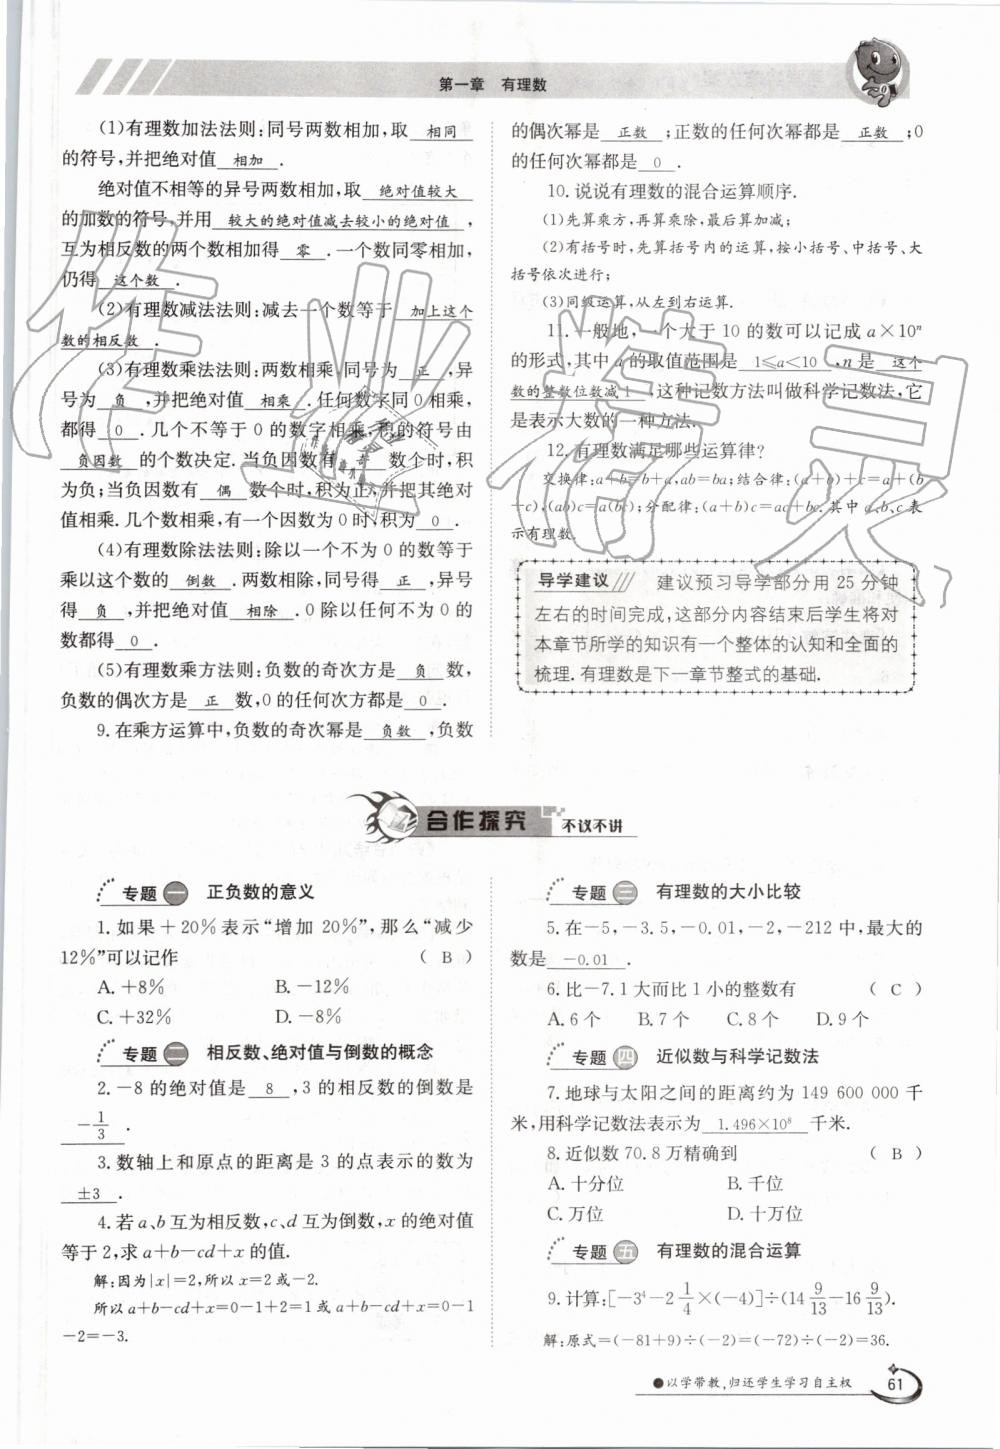 第一章 有理数
(1)有理数加法法则:同号两数相加,取 相同
的符号,并把绝对值 相加 .
绝对值不相等的异号两数相加,取 绝对值较大
的加数的符号,并用 较大的绝对值减去较小的绝对值 ,
互为相反数的两个数相加得 零 . 一个数同零相加,
仍得 这个数 .
(2)有理数减法法则:减去一个数等于 加上这个
数的相反数 .
(3)有理数乘法法则:两数相乘,同号为 正 ,异
号为 负 ,并把绝对值 相乘 . 任何数字同0相乘,
都得 0 . 几个不等于0的数字相乘,积的符号由
负因数 的个数决定. 当负因数有 奇 数个时,积
为负;当负因数有 偶 数个时,积为正,并把其绝对
值相乘. 几个数相乘,有一个因数为0时,积为 0 .
(4)有理数除法法则:除以一个不为0的数等于
乘以这个数的 倒数 . 两数相除,同号得 正 ,异号
得 负 ,并把绝对值 相除 . 0除以任何不为0的
数都得 0 .
(5)有理数乘方法则:负数的奇次方是 负 数,
负数的偶次方是 正 数,0的任何次方都是 0 .
9. 在乘方运算中,负数的奇次幂是 负数 ,负数
的偶次幂是 正数 ;正数的任何次幂都是 正数 ;0
的任何次幂都是 0 .
10. 说说有理数的混合运算顺序.
(1)先算乘方,再算乘除,最后算加减;
(2)有括号时,先算括号内的运算,按小括号、中括号、大
括号依次进行;
(3)同级运算,从左到右运算.
11. 一般地,一个大于10的数可以记成a×10ⁿ
的形式,其中a的取值范围是 1≤a<10 ,n是 这个
数的整数位数减1 ,这种记数方法叫做科学记数法,它
是表示大数的一种方法.
12. 有理数满足哪些运算律?
交换律:a+b=b+a,ab=ba;结合律:(a+b)+c=a+(b
+c),(ab)c=a(bc);分配律:(a+b)c=ac+bc. 其中a,b,c表
示有理数.
导学建议 /// 建议预习导学部分用25分钟
左右的时间完成,这部分内容结束后学生将对
本章节所学的知识有一个整体的认知和全面的
梳理. 有理数是下一章节整式的基础.
合作探究 不议不讲
专题一 正负数的意义
1. 如果+20%表示“增加20%”,那么“减少
12%”可以记作 ( B )
A. +8% B. -12%
C. +32% D. -8%
专题二 相反数、绝对值与倒数的概念
2. -8的绝对值是 8 ,3的相反数的倒数是
-1/3 .
3. 数轴上和原点的距离是3的点表示的数为
±3 .
4. 若a、b互为相反数,c、d互为倒数,x的绝对值
等于2,求a+b-cd+x的值.
解:因为|x|=2,所以x=2或-2.
所以a+b-cd+x=0-1+2=1或a+b-cd+x=0-1
-2=-3.
专题三 有理数的大小比较
5. 在-5,-3.5,-0.01,-2,-212中,最大的
数是 -0.01 .
6. 比-7.1大而比1小的整数有 ( C )
A. 6个 B. 7个 C. 8个 D. 9个
专题四 近似数与科学记数法
7. 地球与太阳之间的距离约为149 600 000千
米,用科学记数法表示为 1.496×10⁸ 千米.
8. 近似数70.8万精确到 ( B )
A. 十分位 B. 千位
C. 万位 D. 十万位
专题五 有理数的混合运算
9. 计算:[-3⁴-2 1/4×(-4)]÷(14 9/13-16 9/13).
解:原式=(-81+9)÷(-2)=(-72)÷(-2)=36.
●以学带教,归还学生学习自主权 61